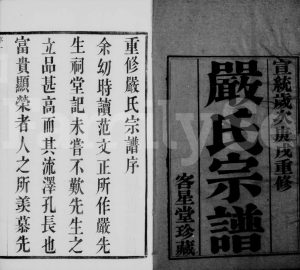 宣統歲次庚戌重修
嚴氏宗譜
客星堂珍藏
重修嚴氏宗譜序
余幼時讀范文正所作嚴先
生祠堂記未嘗不歎先生之
立品甚高而其流澤孔長也
富貴顯榮者人之所羨慕先